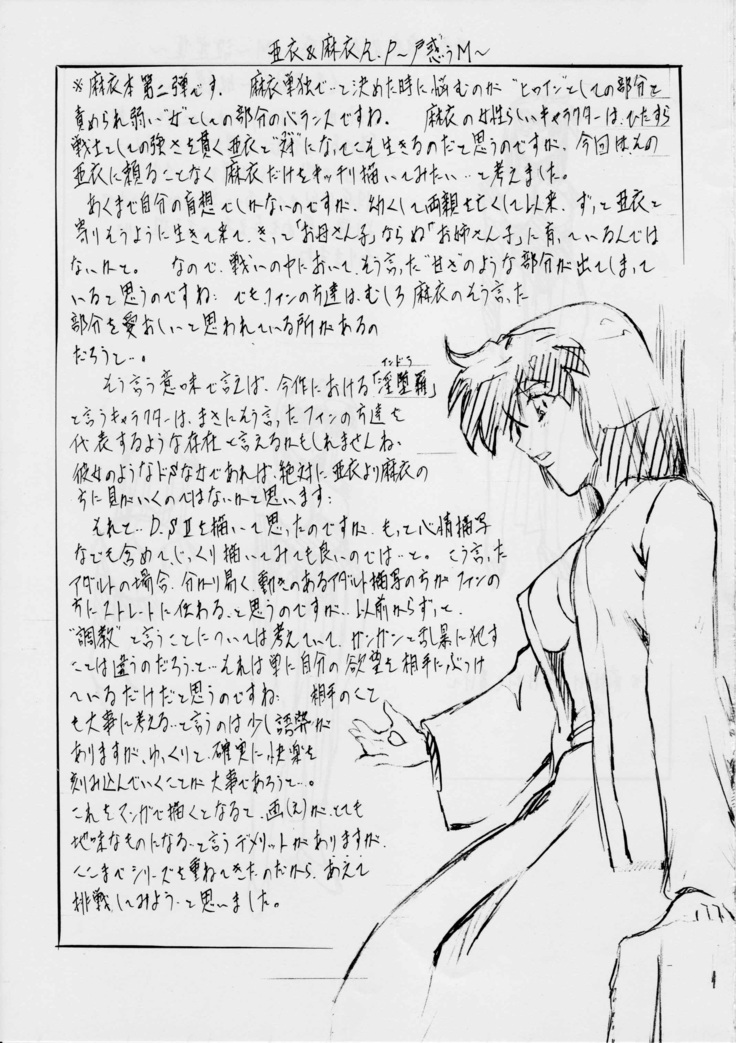 亜衣&麻衣R.P～戸惑うM～
※麻衣本第二弾です。 麻衣単独で…と決めた時に悩むのが“ヒロイン”としての部分と
責められ弱い“女”としての部分のバランスですね。 麻衣の女性らしいキャラクターは、ひたすら
戦士としての強さを貫く亜衣と“対”になってこそ生きるのだと思うのですが、今回はその
亜衣に頼ることなく麻衣だけをキッチリ描いてみたい…と考えました。
あくまで自分の妄想でしかないのですが、幼くして両親を亡くして以来、ずっと亜衣と
寄りそうように生きて来て、きっと「お母さん子」ならぬ「お姉さん子」に育っているんでは
ないかと。 なので、戦いの中において、そう言った“甘さ”のような部分が出てしまって
いると思うのですね… でも、ファンの方達は、むしろ麻衣のそう言った
部分を愛おしいと思われている所があるの
だろうと…。
そう言う意味で言えば、今作における「淫堕羅」
インドラ
と言うキャラクターは、まさにそう言ったファンの方達を
代表するような存在と言えるかもしれませんね、
彼女のようなドSな女であれば、絶対に亜衣より麻衣の
方に目がいくのではないかと思います…
それと…D.SⅡを描いて思ったのですが、もっと心情描写
なども含めてじっくり描いてみても良いのでは…と。 こう言った
アダルトの場合、分かり易く、動きのあるアダルト描写の方がファンの
方にストレートに伝わる、と思うのですが…以前からずっと、
“調教”と言うことについては考えていて、ガンガンと乱暴に犯す
ことは違うのだろうと…それは単に自分の欲望を相手にぶつけ
ているだけだと思うのですね… 相手のことも
大事に考える…と言うのは少し語弊が
ありますが、ゆっくりと、確実に快楽を
刻み込んでいくことが大事であろうと…。
これをマンガで描くとなると、画(え)が、とても
地味なものになる…と言うデメリットがありますが、
ここまでシリーズを重ねてきたのだから、あえて
挑戦してみよう…と思いました。